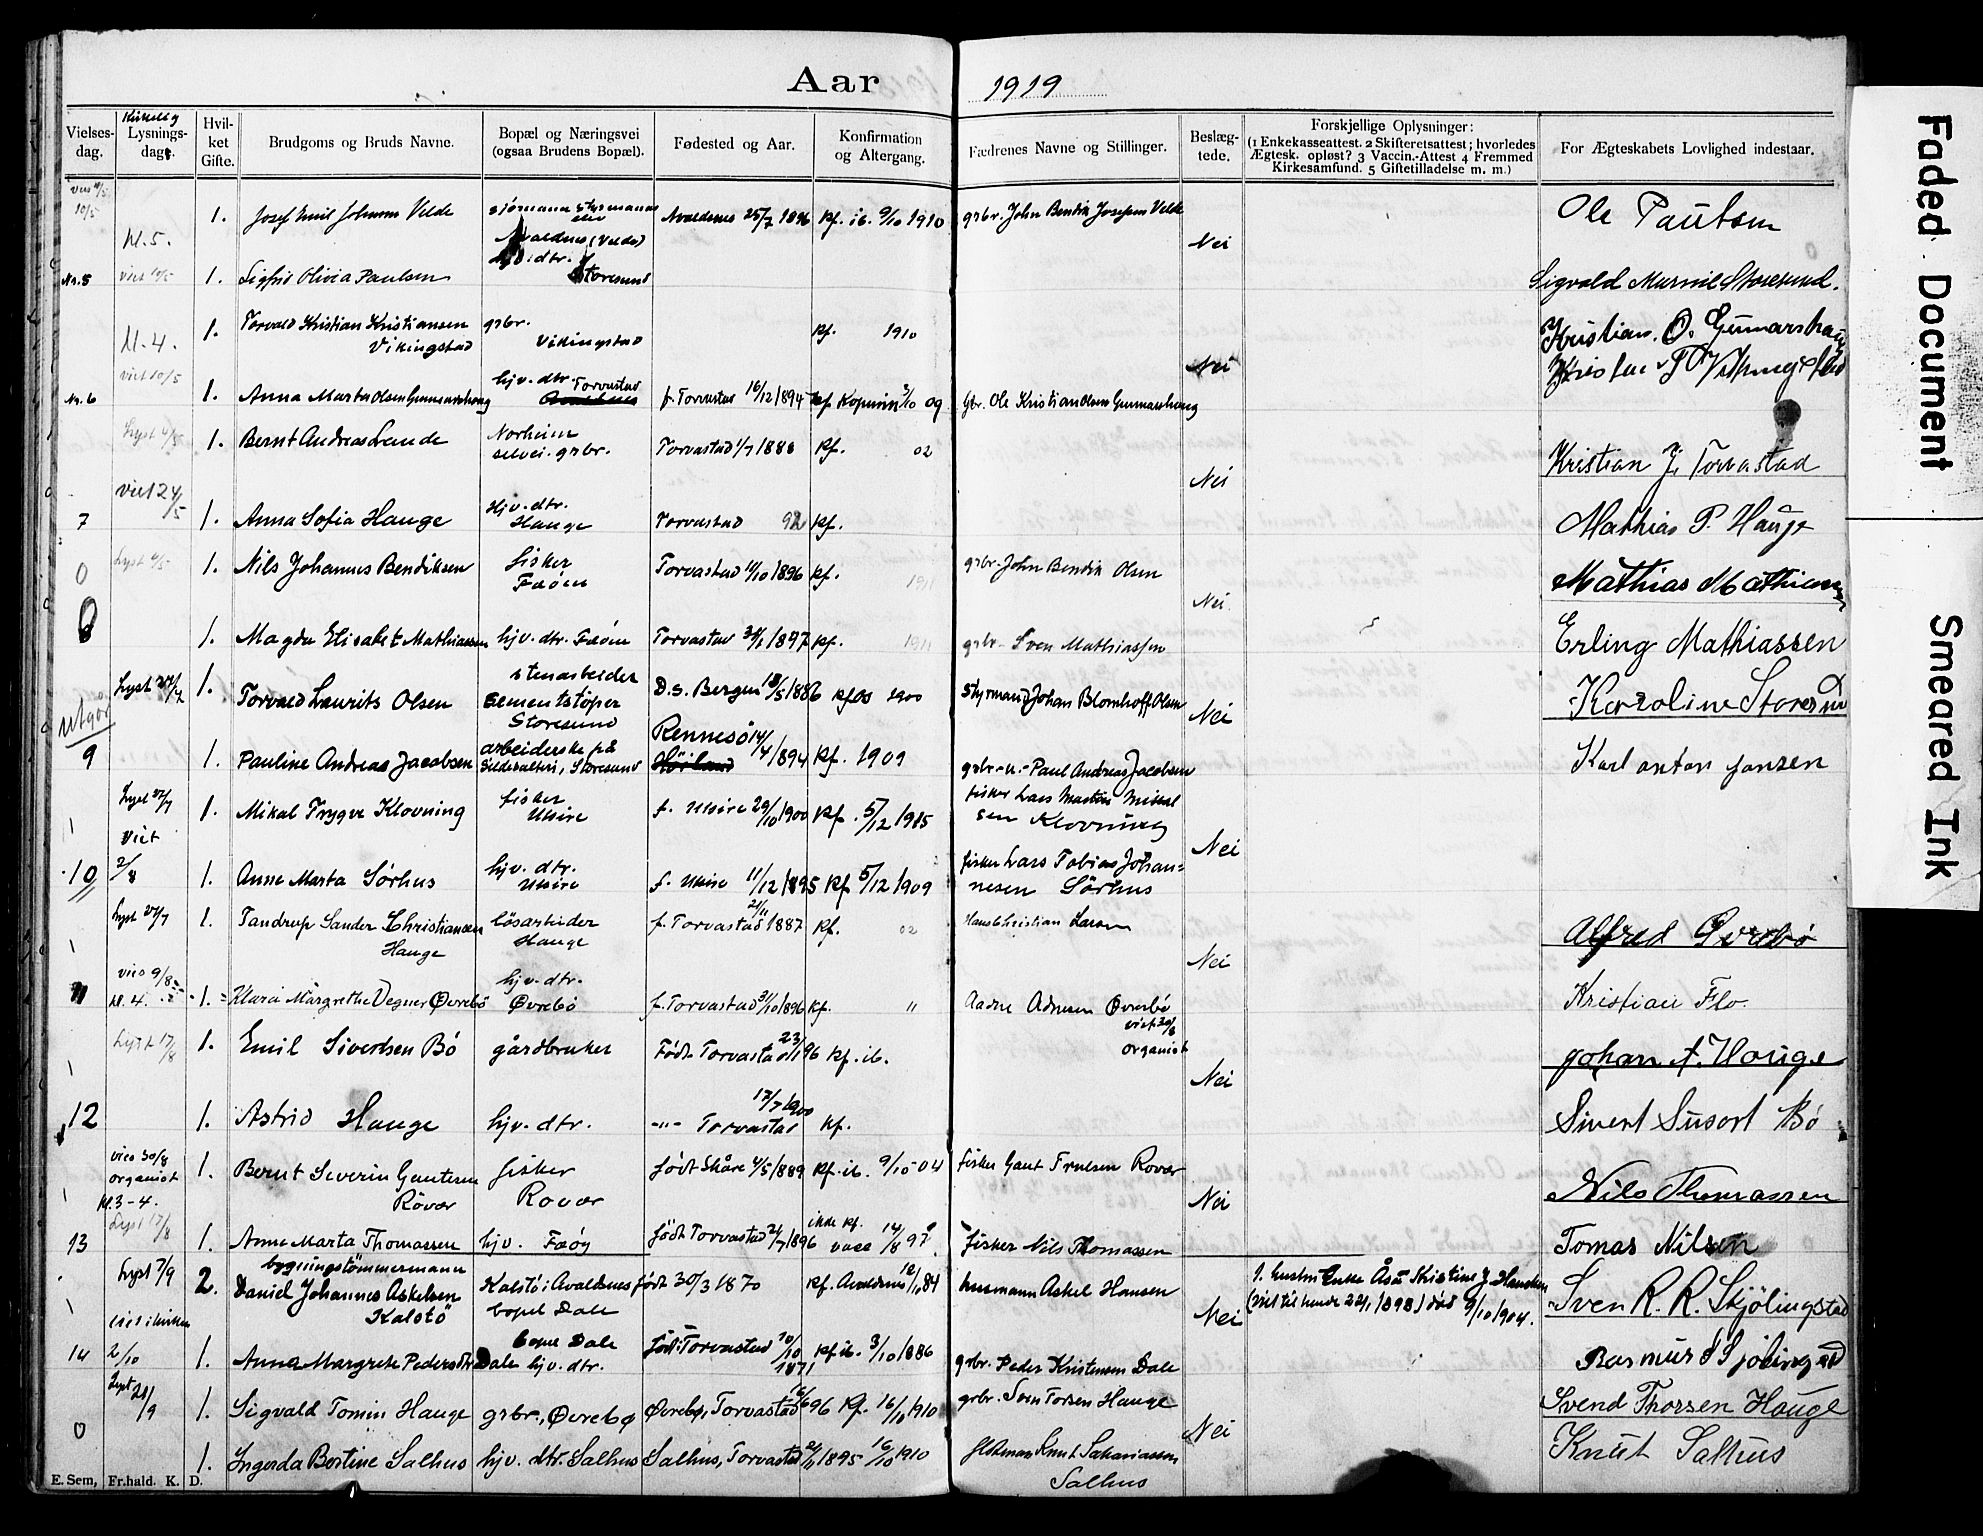 Aar 1919
Vielses-dag. Kirkelig Lysnings-dage. Hvil-ket Gifte. Brudgoms og Bruds Navne. Bopæl og Næringsvei (ogsaa Brudens Bopæl). Fødested og Aar. Konfirmation og Altergang. Fædrenes Navne og Stillinger. Beslæg-tede. Forskjellige Oplysninger: (1 Enkekasseattest. 2 Skifteretsattest; hvorledes Ægtesk. opløst? 3 Vaccin.-Attest 4 Fremmed Kirkesamfund. 5 Giftetilladelse m. m.) For Ægteskabets Lovlighed indestaar.
10/5 kl. 5. 1. Josef Emil Johnsen Velde Avaldnes (Velde) Avaldnes 25/7 1896 kf. ib. 9/10 1910 grbr. John Bendik Josefsen Velde Nei Ole Paulsen
Nr. 5 viet 10/5 1. Sigfrid Olivia Paulsen hjv. dtr. Storesund Sigvald Storesund.
kl. 4. 1. Torvald Kristian Kristiansen Vikingstad grbr. Vikingstad kf. 1910 Nei Kristian. O. Gunnarshaug
viet 10/5
Nr. 6 1. Anna Marta Olsen Gunnarshaug hjv. dtr. Torvastad f. Torvastad 16/12 1894 kf Kopervik 3/10 09 Gbr. Ole Kristian Olsen Gunnarshaug
Lyst 4/5 1. Bernt Andreas Lande Norheim selvei. grbr. Torvastad 1/7 1888 kf. 02 Nei Kristian J. Torvastad
Viet 24/5
7 1. Anna Sofia Hauge Hjv. dtr. Hauge Torvastad 92 kf. Mathias P. Hauge
0 Lyst 4/5 1. Nils Johannes Bendiksen fisker Feøen Torvastad 11/10 1896 kf. 1911 grbr. John Bendik Olsen Nei Mathias Mathiassen
8 1. Magda Elisabet Mathiassen hjv. dtr. Feøen Torvastad 1897 kf. 1911 grbr. Sven Mathiassen Erling Mathiassen
utgår Lyst 27/7 1. Torvald Laurits Olsen stenarbeider sementstøper Storesund D.s. Bergen 18/5 1886 kf 1900 Styrmand Johan Blomhoff Olsen Nei Karoline Storesund
9 1. Pauline Andrea Jacobsen arbeiderske på Sildesalteri, Storesund Rennesö 14/4 1894 kf. 1909 grbr. Paul Andreas Jacobsen Karl anton jansen
Lyst 27/7 1. Mikal Trygve Klovning fisker Utsire f. Utsire 29/10 1900 kf. 5/12 1915 fisker Lars Martin Mikkelsen Klovning Nei
Viet
10 2/8 1. Anne Marta Sørhus hjv. dtr. Utsire f. Utsire 11/12 1895 kf 5/12 1909 fisker Lars Tobias Johannesen Sörhus
Lyst 27/7 1. Tandrup Sander Christiansen Hauge løsarbeider Hauge f. Torvastad 21/11 1887 kf. 02 Hans Christian Larsen Nei Alfred Øvrebø
vies 9/8
11 kl. 4. 1. Klara Margrethe Degner Øvrebö hjv. dtr. Øvrebö f. Torvastad 31/10 1896 kf. 11 Aadne Adnesen Øvrebö Kristian Flo.
Lyst 17/8 1. Emil Sivertsen Bö gårdbruker Født Torvastad 23/1 96 kf. ib. viet 30/8 organist Nei Johan A. Hauge
12 1. Astrid Hauge hjv. dtr. 17/7 1900 -"- Torvastad kf. Sivert Susort Bö
vies 30/8 organist kl. 3-4. 1. Bernt Severin Gautesen Rövær fisker Rovær født Skåre 4/5 1889 kf. ib. 9/10-04 fisker Gaut Truelsen Rovær Nei Nils Thomassen
Lyst 17/8
13 1. Anne Marta Thomassen hjv. Feøy født Torvastad 24/7 1896 ikke kf. vacc 14/8 97. fisker Nils Thomassen Tomas Nilsen
Lyst 7/9 2. bygningstömmermann Daniel Johannes Askelsen Kalstö Kalstö i Avaldsnes bopel Dale født 30/3 1870 kf. Avaldsnes 12/11 84 husmann Askel Hansen Nei 1. hustru Åsa Kristine J. (viet til hende 22/1 1898) död 9/10 1904. Sven R. R. Skjölingstad
viet i kirken
14 2/10 1. Anna Margrete Pedersdtr Dale bopel Dale hjv. dtr. født Torvastad 10/10 1871 kf. ib. 3/10 1886 grbr. Peder Kristensen Dale Rasmus S Sjölingstad
Lyst 21/9 1. Sigvald Tomin Hauge grbr., Øvrebø Øvrebø, Torvastad 96 kf. 16/10 1910 grbr. Sven Torsen Hauge Nei Svend Thorsen Hauge
0 1. Ingerda Bertine Salhus hjv. dtr. Salhus Salhus, Torvastad 1895 16/10 1910 Knut Sakariassen Salhus Knut Salhus
E. Sem, Fr.hald. K. D.
Faded Document
Smeared Ink